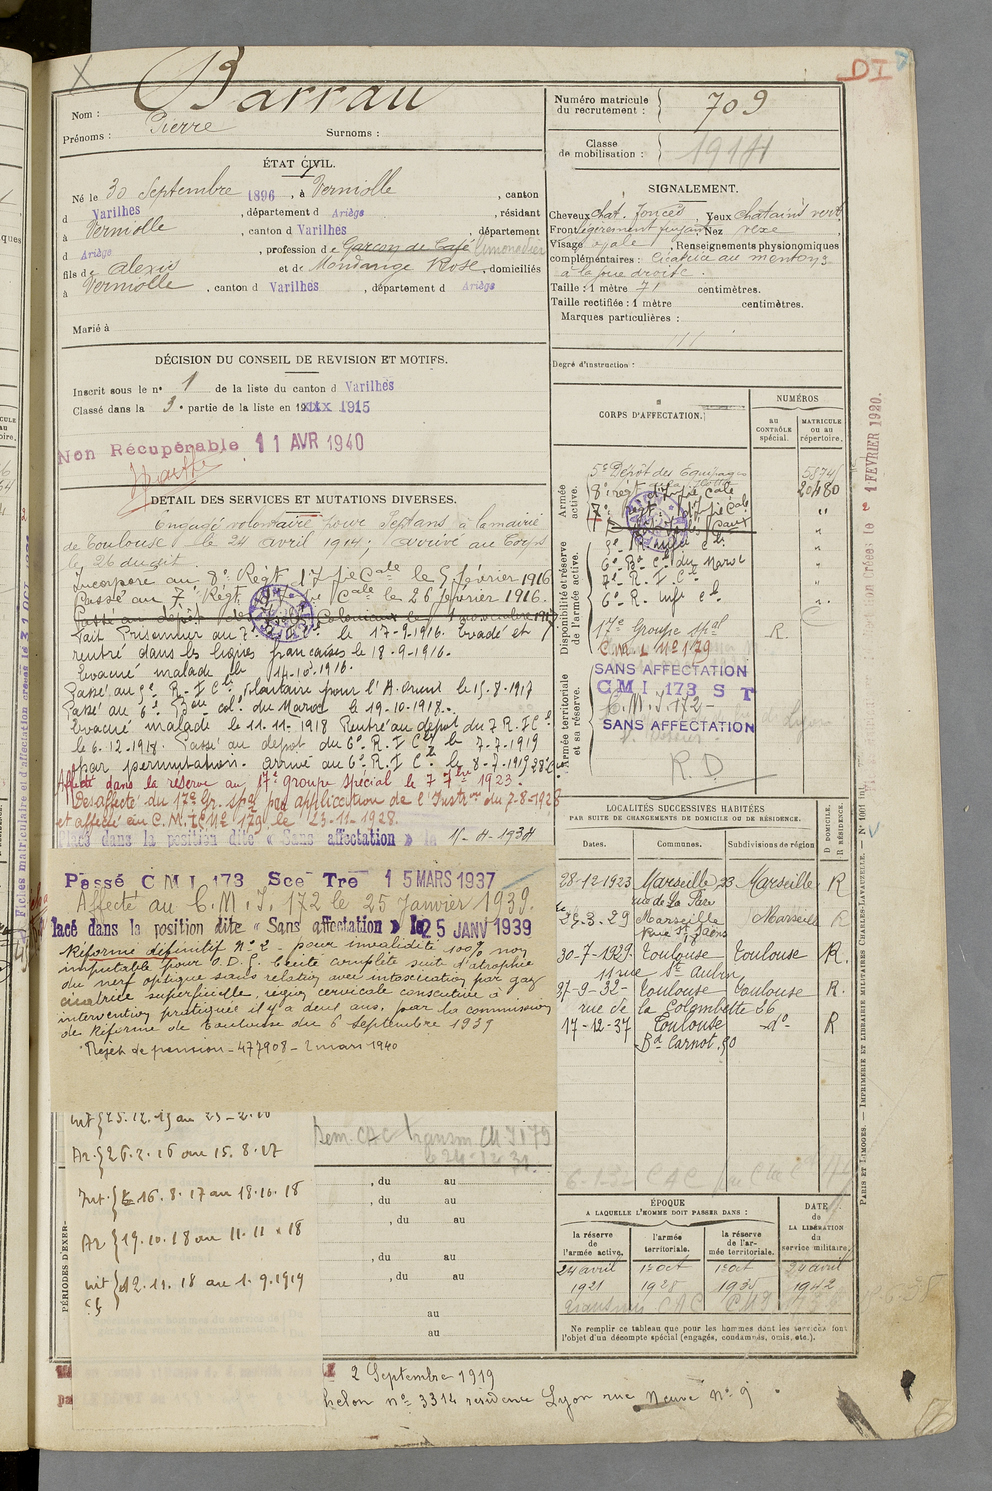 DI
Nom : Barrau
Prénoms : Pierre Surnoms :
Numéro matricule du recrutement : 709
Classe de mobilisation : 1914
ÉTAT CIVIL.
Né le 30 Septembre 1896, à Verniolle, canton
d Varilhes, département d Ariège, résidant
à Verniolle, canton d Varilhes, département
d Ariège, profession de Garçon de Café limonadier
fils de Alexis et de Mondange Rose, domiciliés
à Verniolle, canton d Varilhes, département d Ariège
Marié à
SIGNALEMENT.
Cheveux chat. foncés Yeux chatains verts
Front légèrement fuyant Nez vexe
Visage ovale, Renseignements physionomiques
complémentaires : Cicatrice au menton &
à la joue droite.
Taille : 1 mètre 71 centimètres.
Taille rectifiée : 1 mètre centimètres.
Marques particulières :
Degré d'instruction :
DÉCISION DU CONSEIL DE REVISION ET MOTIFS.
Inscrit sous le n° 1 de la liste du canton d Varilhes
Classé dans la 3e partie de la liste en 1915
Non Récupérable 11 AVR 1940
DETAIL DES SERVICES ET MUTATIONS DIVERSES.
Engagé volontaire pour Sept ans à la mairie
de Toulouse le 24 avril 1914, arrivé au Corps
le 26 dudit.
Incorporé au 8e Régt d'Ifie Cale le 5 février 1916
Passé au 7e Régt Cale le 26 février 1916.
Passé au dépôt des Coloniaux le 1 novembre 1917
Fait Prisonnier au 7e le 17-9-1916. Evadé et
rentré dans les lignes françaises le 18-9-1916.
Evacué malade le 14-10-1916.
Passé au 3e R.I.C. volontaire pour l'A. Orient le 15-8-1917
Passé au 6e Bon col. du Maroc le 19-10-1918.
Evacué malade le 11-11-1918 Rentré au dépôt du 7 R.I.C.
le 6-12-1918. Passé au dépôt du 6e R.I.C. le 7-7-1919
par permutation. arrivé au 6e R.I.C. le 8-7-1919
Affecté dans la réserve au 17e groupe spécial le 7 7bre 1923.
Desaffecté du 17e Gr. spal par application de l'Instron du 7-8-1928
et affecté au C.M.I. No 179 le 23-11-1928.
Placé dans la position dite « Sans affectation » le 15-4-1934
Passé C M I 173 Sce Tre 15 MARS 1937
Affecté au C.M.I. 172 le 25 Janvier 1939.
lacé dans la position dite « Sans affectation » le 25 JANV 1939
Réformé définitif No 2 - pour invalidité 100% non
imputable pour O.D.S. Cécité complète suit d'atrophie
du nerf optique sans relation avec intoxication par gaz
cicatrice superficielle, région cervicale consécutive à
intervention pratiquée il y a deux ans, par la commission
de Réforme de Toulouse du 6 septembre 1939
Rejet de pension - 477908 - 2 mars 1940
CORPS D'AFFECTATION.
NUMÉROS
au CONTRÔLE spécial.
MATRICULE ou au répertoire.
Armée active.
5e Dépôt des Equipages de la flotte 5874
8e régt d'Ifie Cale 20480
6e Bon Cal du Maroc
7e R. I. C.
6e R. Infie Cle
Disponibilité et réserve de l'armée active.
17e Groupe spal R.
C.M.I. No 179
SANS AFFECTATION
C M I 173 S T
C.M.I. 172
SANS AFFECTATION
Armée territoriale et sa réserve.
R.D.
LOCALITÉS SUCCESSIVES HABITÉES
PAR SUITE DE CHANGEMENTS DE DOMICILE OU DE RÉSIDENCE.
Dates. Communes. Subdivisions de région D DOMICILE. R RÉSIDENCE.
28-12-1923 Marseille 23 Marseille R
rue de La Pare
25-3-29 Marseille Marseille R
Rue St Saëns
30-7-1929 Toulouse Toulouse R.
11 rue St Aubin
27-9-32 Toulouse Toulouse R.
rue de la Colombette 26
17-12-37 Toulouse -do- R
Bd Carnot 90
int { 25.12.15 au 25-2-16
Ar. { 26.2.16 au 15.8.17
Int. { 16.8.17 au 18.10.18
Ar { 19.10.18 au 11.11.18
int { 12.11.18 au 1.9.1919
CS
Dem. CAC transm CMI 179
le 24-12-31.
PÉRIODES D'EXER-
, du au
, du au
, du au
, du au
, du au
au
au
ÉPOQUE
A LAQUELLE L'HOMME DOIT PASSER DANS :
la réserve de l'armée active.
l'armée territoriale.
la réserve de l'armée territoriale.
DATE de LA LIBÉRATION du service militaire.
24 avril 1921
1er Oct 1928
1er Oct 1935
24 avril 1942
Ne remplir ce tableau que pour les hommes dont les services font
l'objet d'un décompte spécial (engagés, condamnés, omis, etc.).
2 Septembre 1919
helon no 3314 résidence Lyon rue Neuve No 9
PARIS ET LIMOGES. — IMPRIMERIE ET LIBRAIRIE MILITAIRES CHARLES-LAVAUZELLE. — No 1001
1 FEVRIER 1920.